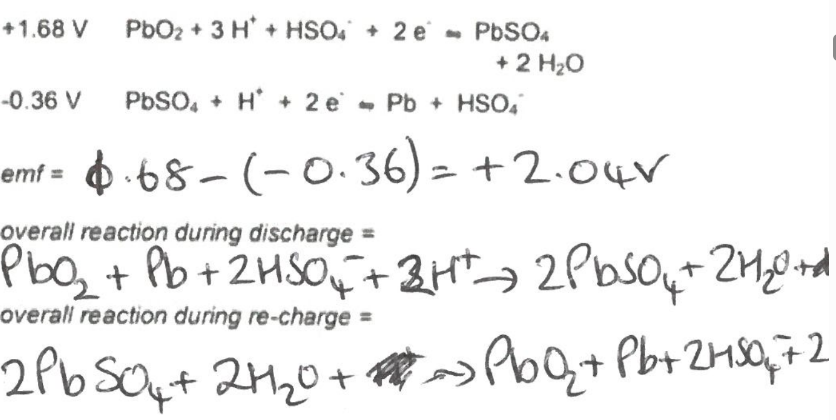 +1.68 V PbO₂ + 3 H⁺ + HSO₄⁻ + 2 e⁻ ⇌ PbSO₄
+ 2 H₂O
-0.36 V PbSO₄ + H⁺ + 2 e⁻ ⇌ Pb + HSO₄⁻
emf = 1.68 - (-0.36) = +2.04V
overall reaction during discharge =
PbO₂ + Pb + 2HSO₄⁻ + 2H⁺ → 2PbSO₄ + 2H₂O +
overall reaction during re-charge =
2PbSO₄ + 2H₂O + → PbO₂ + Pb + 2HSO₄⁻ + 2